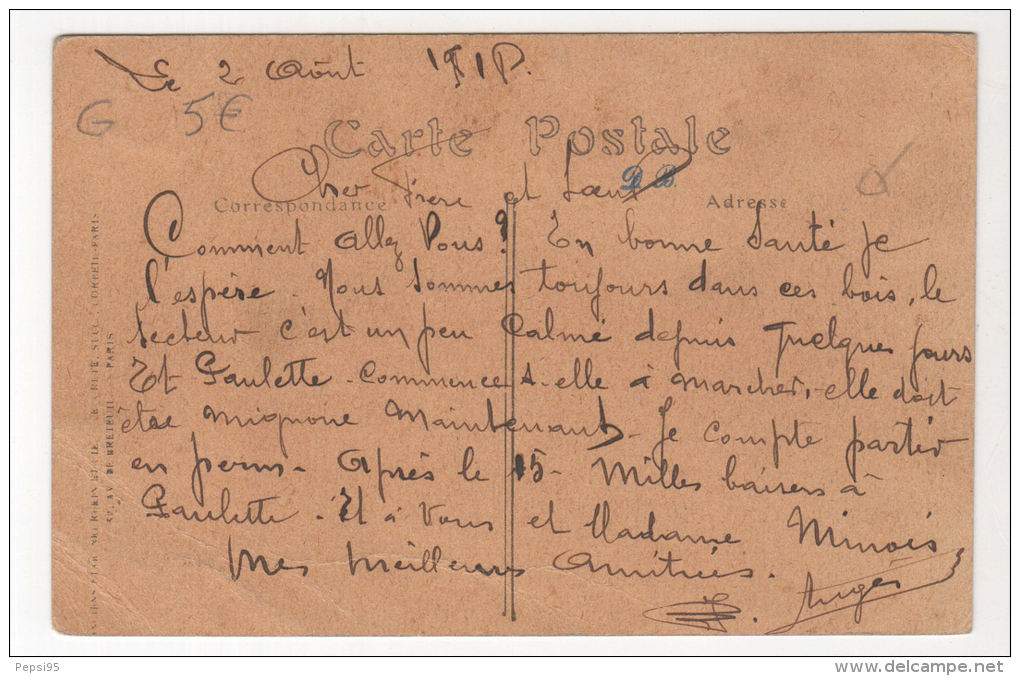 Le 2 Août 191
G 5€
Carte Postale
D.B.
Cher Frère et Soeur
Correspondance
Adresse
Comment allez Vous? En bonne Santé je
l'espère. Nous Sommes toujours dans ces bois, le
Secteur c'est un peu Calmé depuis quelques jours
Et Paulette. Commence t-elle à marcher, elle doit
être mignone Maintenant. Je compte partir
en perm. Après le 15. Milles baisers à
Paulette. Et à Vous et Madame Minois
Mes Meilleures Amitiées.
Auger
AV. DE BRETEUIL - PARIS
CORBEIL-PARIS
Pepsi95
www.delcampe.net